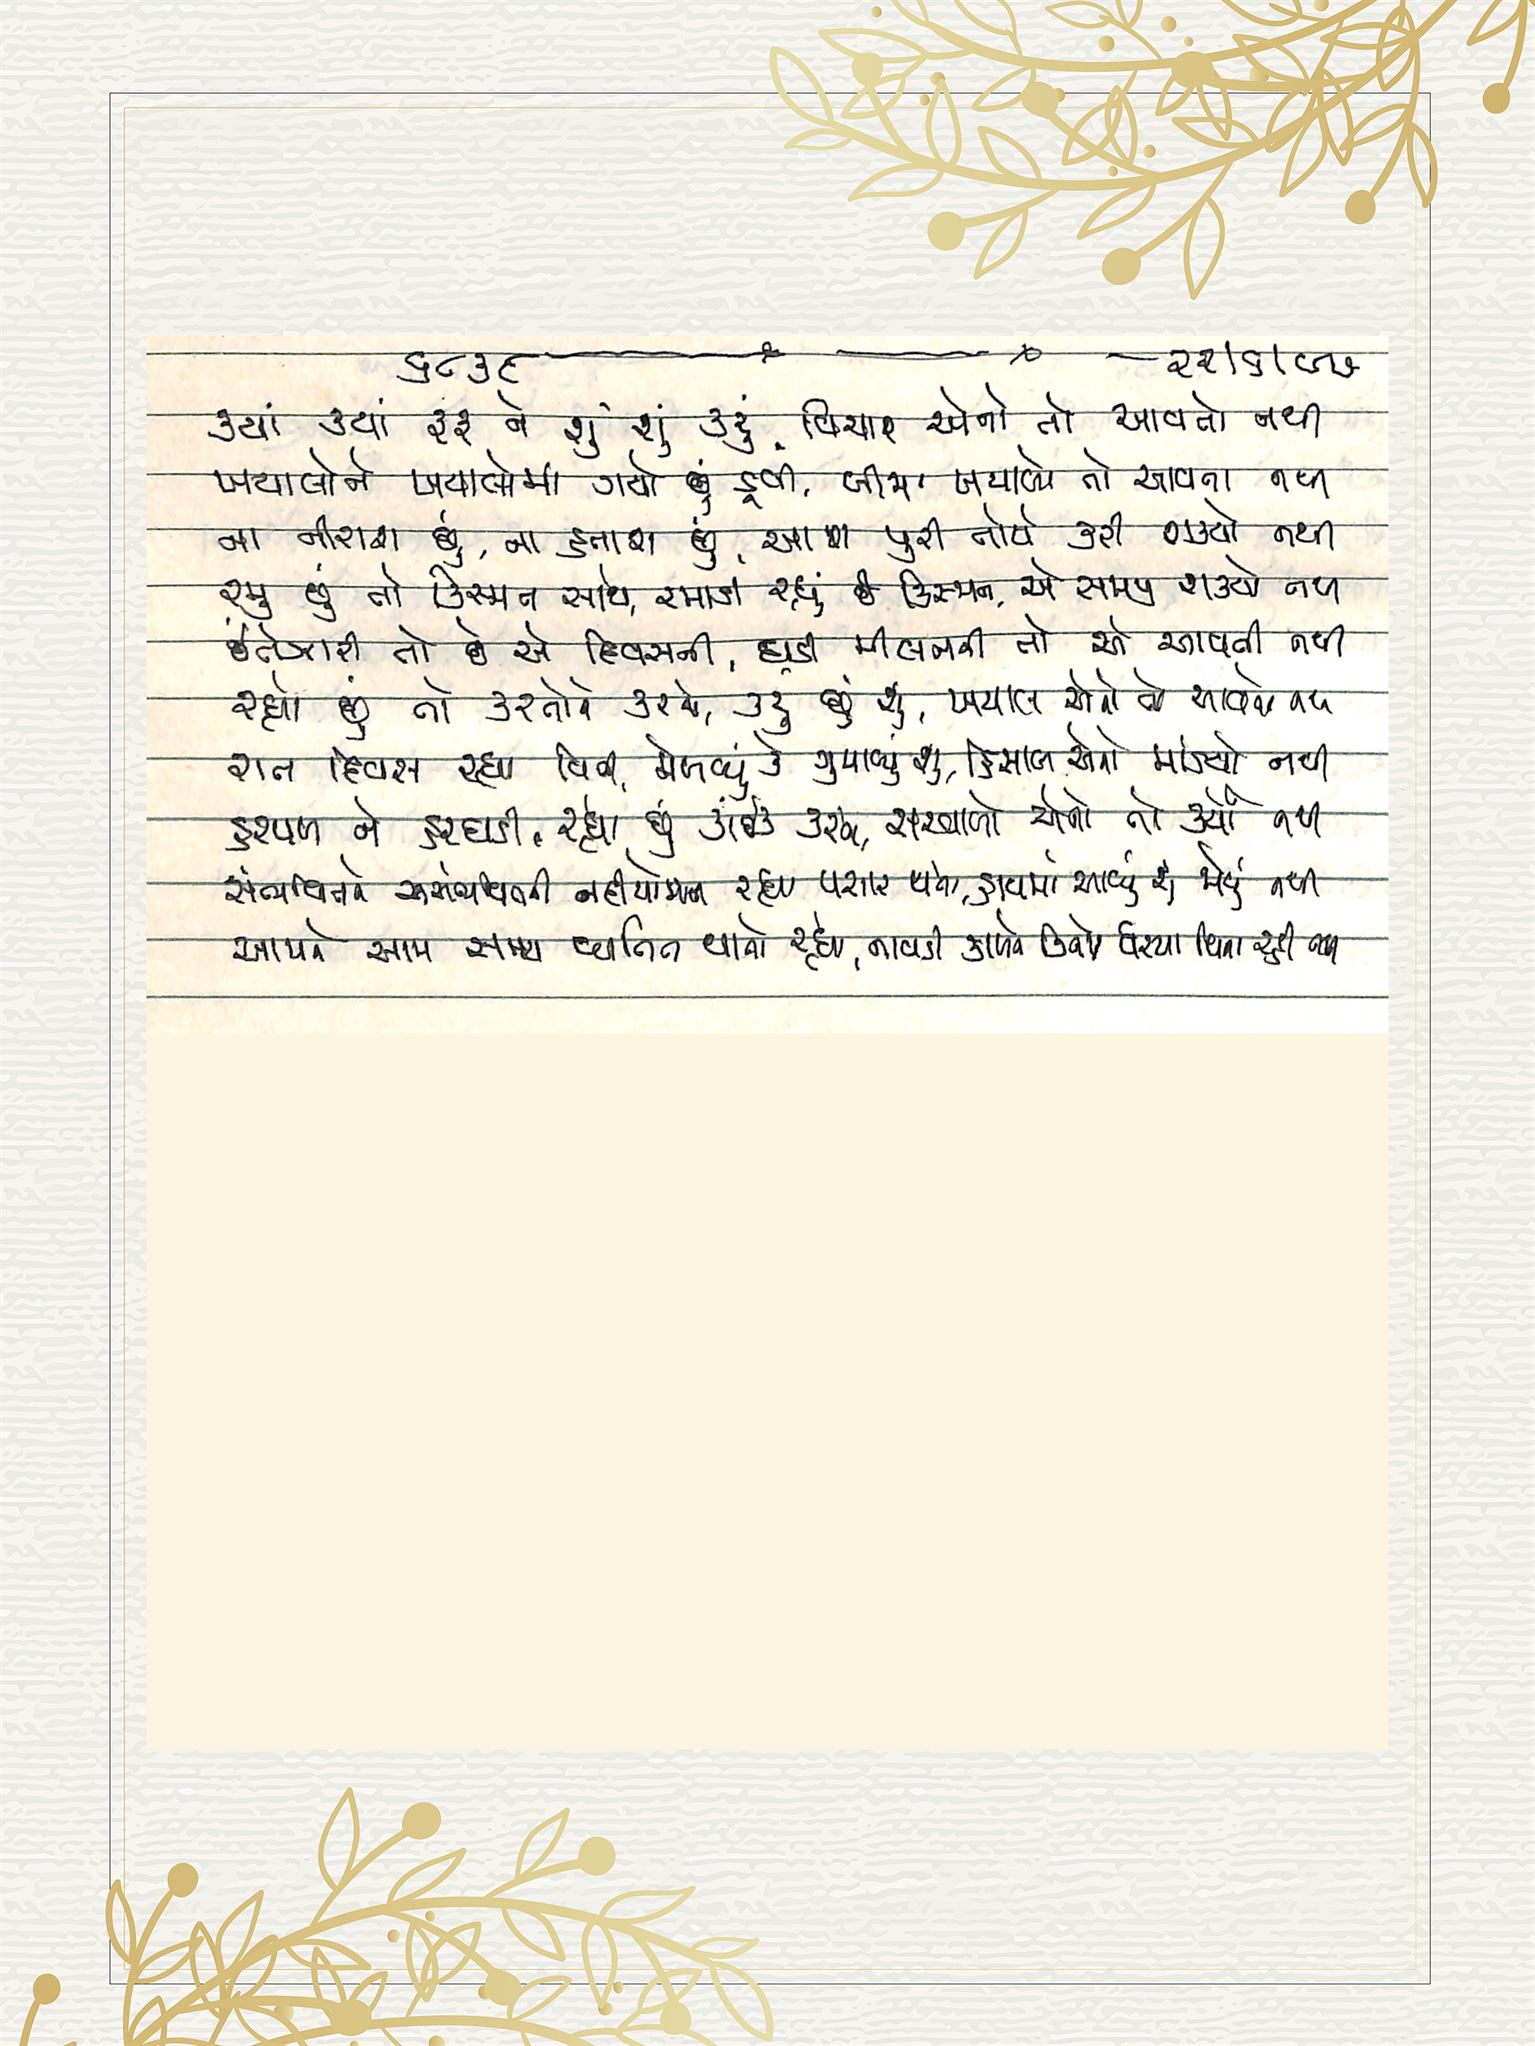 ૬૮૩૯ ૨૨/૬/૮૭
ક્યાં ક્યાં ફરૂં ને શું શું કરૂં, વિચાર એનો તો આવતો નથી
ખયાલોને ખયાલોમાં ગયો છું ડૂબી, બીજા ખયાલો તો આવતા નથી
ના નીરાશ છું, ના હતાશ છું, આશ પુરી તોયે કરી શક્યો નથી
રમુ છું તો કિસ્મત સાથે, રમાડી રહ્યું છે કિસ્મત, એ સમજી શક્યો નથી
ઈંતેજારી તો છે એ દિવસની, ઘડી મીલનની તો એ આવતી નથી
રહ્યો છું તો કરતોને કરતો, કરૂ છું શું, ખયાલ એનો તો આવતો નથી
રાત દિવસ રહ્યા વિતી, મેળવ્યું કે ગુમાવ્યું શું, હિસાબ એનો માંડયો નથી
હરપળ ને હરઘડી, રહ્યો છું કાંઈક કરતો, સરવાળો એનો તો કર્યો નથી
સંબંધિતને અસંબંધિતની નદીયોમાંથી રહ્યો પસાર થાતો, હાથમાં આવ્યું શું જોયું નથી
આમને આમ સમય વ્યતિત થાતો રહ્યો, નાવડી કાંઠાને કિનારે પહોંચ્યા વિના રહી નથી